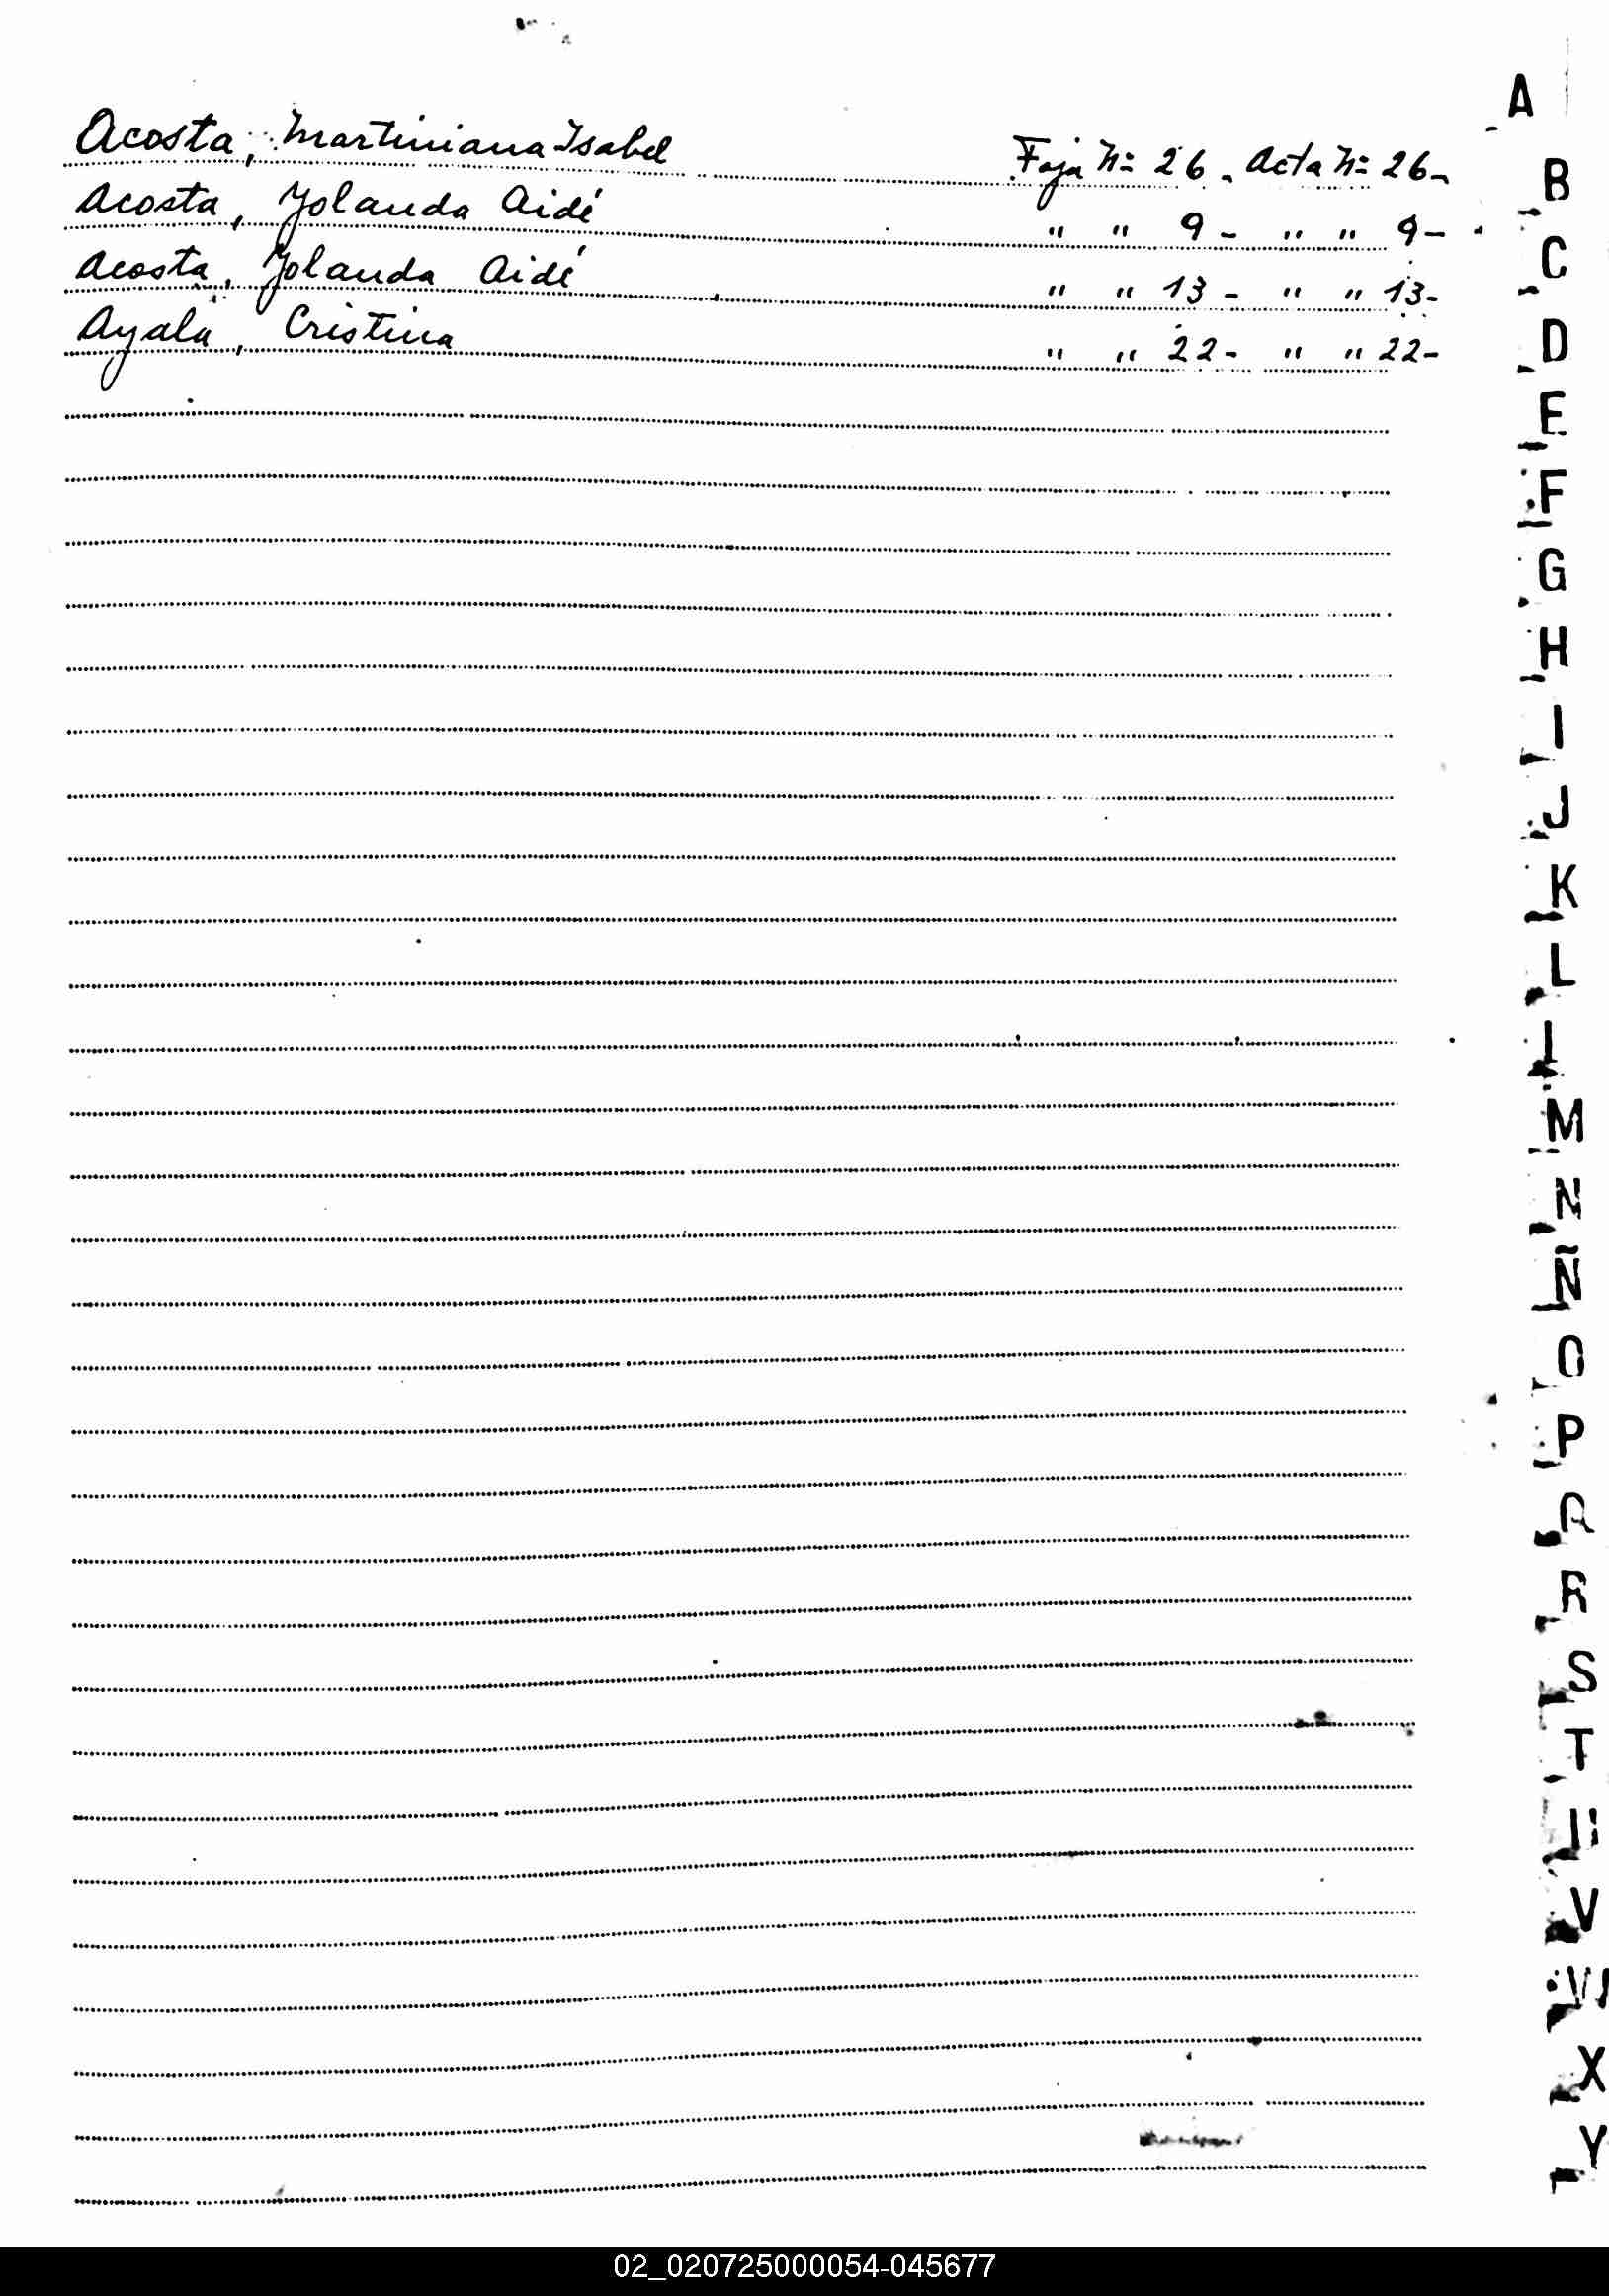 Acosta, Martiniana Isabel Foja Nº 26 - Acta Nº 26 -
Acosta, Yolanda Aidé " " 9 - " " 9 -
Acosta, Yolanda Aidé " " 13 - " " 13 -
Ayala, Cristina " " 22 - " " 22 -
A
B
C
D
E
F
G
H
I
J
K
L
M
N
Ñ
O
P
Q
R
S
T
U
V
W
X
Y
02_020725000054-045677